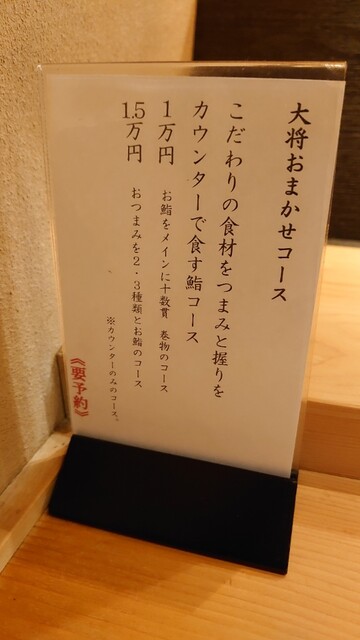 大将おまかせコース
こだわりの食材をつまみと握りを
カウンターで食す鮨コース
1万円 お鮨をメインに十数貫 巻物のコース
1.5万円 おつまみを2・3種類とお鮨のコース
※カウンターのみのコース。
《要予約》